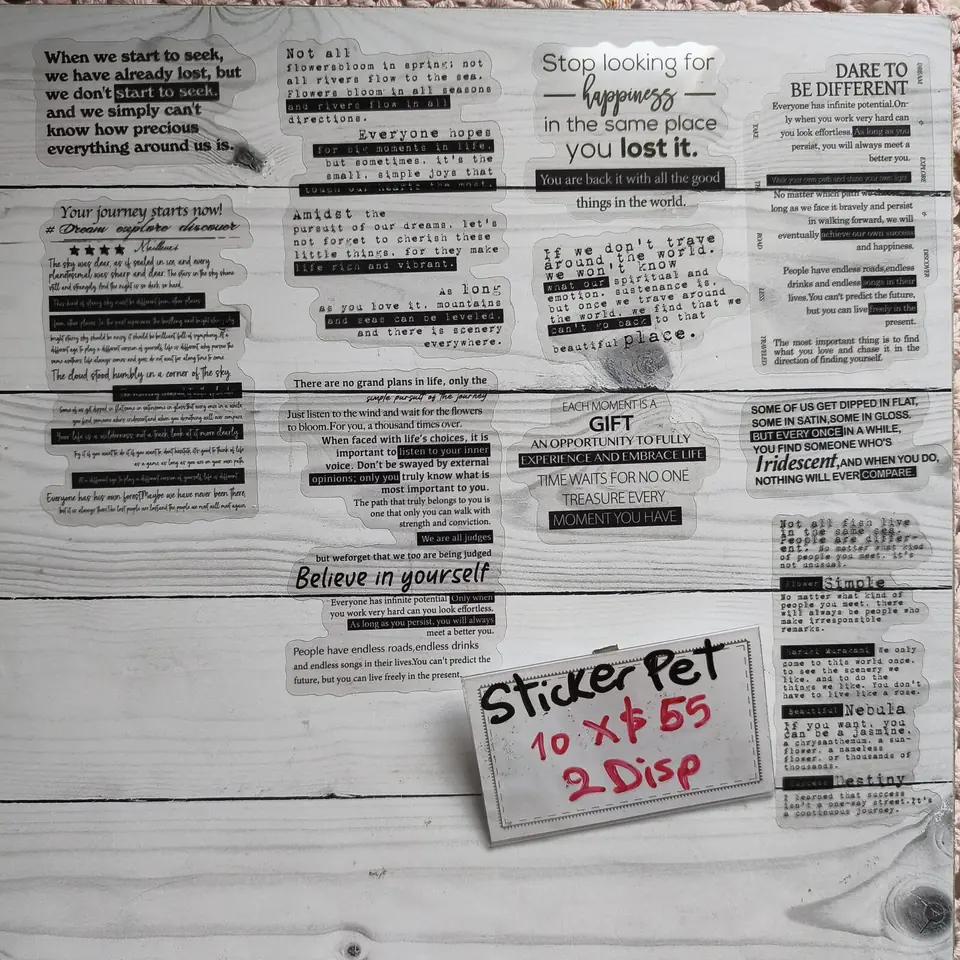 When we start to seek,
we have already lost, but
we don't start to seek.
and we simply can't
know how precious
everything around us is.
Your journey starts now!
# Dream explore discover
The sky was clear, as if sealed in ice, and every
planetismal was sharp and clear. The stars in the sky shone
still and strangely. And the night is so dark, so hard.
This kind of starry sky must be different from other places
The cloud stood humbly in a corner of the sky.
Your life is a wilderness, not a track, look at it more clearly
Everyone has his own forest,Maybe we have never been there,
but it is always there,the lost people are lost,and the people we met will meet again
Not all
flowersbloom in spring; not
all rivers flow to the sea.
Flowers bloom in all seasons
and rivers flow in all
directions.
Everyone hopes
for big moments in life,
but sometimes, it's the
small, simple joys that
touch our hearts the most.
Amidst the
pursuit of our dreams, let's
not forget to cherish these
little things, for they make
life rich and vibrant.
As long
as you love it, mountains
and seas can be leveled,
and there is scenery
everywhere.
There are no grand plans in life, only the
simple pursuit of the journey
Just listen to the wind and wait for the flowers
to bloom.For you, a thousand times over.
When faced with life's choices, it is
important to listen to your inner
voice. Don't be swayed by external
opinions; only you truly know what is
most important to you.
The path that truly belongs to you is
one that only you can walk with
strength and conviction.
We are all judges
but weforget that we too are being judged
Believe in yourself
Everyone has infinite potential Only when
you work very hard can you look effortless.
As long as you persist, you will always
meet a better you.
People have endless roads,endless drinks
and endless songs in their lives.You can't predict the
future, but you can live freely in the present.
Stop looking for
happiness
in the same place
you lost it.
You are back it with all the good
things in the world.
If we don't trave
around the world.
we won't know
what our spiritual and
emotion. sustenance is.
but once we trave around
the world. we find that we
can't go back to that
beautiful place.
EACH MOMENT IS A
GIFT
AN OPPORTUNITY TO FULLY
EXPERIENCE AND EMBRACE LIFE
TIME WAITS FOR NO ONE
TREASURE EVERY
MOMENT YOU HAVE
DARE TO
BE DIFFERENT
Everyone has infinite potential.On-
ly when you work very hard can
you look effortless. As long as you
persist, you will always meet a
better you.
Walk your own path and shine your own light
No matter which path we choose, as
long as we face it bravely and persist
in walking forward, we will
eventually achieve our own success
and happiness.
People have endless roads,endless
drinks and endless songs in their
lives.You can't predict the future,
but you can live freely in the
present.
The most important thing is to find
what you love and chase it in the
direction of finding yourself.
DREAM
EXPLORE
DISCOVER
TAKE
THE
ROAD
LESS
TRAVELED
SOME OF US GET DIPPED IN FLAT,
SOME IN SATIN,SOME IN GLOSS.
BUT EVERY ONCE IN A WHILE,
YOU FIND SOMEONE WHO'S
Iridescent,AND WHEN YOU DO,
NOTHING WILL EVER COMPARE
Not all fish live
in the same sea.
People are differ-
ent. No matter what kind
of people you meet, it's
not unusual.
Flower Simple
No matter what kind of
people you meet, there
will always be people who
make irresponsible
remarks.
Haruki Murakami We only
come to this world once.
to see the scenery we
like, and to do the
things we like. You don't
have to live like a rose.
Beautiful Nebula
If you want, you
can be a jasmine.
a chrysanthemum, a sun-
flower, a nameless
flower, or thousands of
thousands.
Success Destiny
I learned that success
isn't a one-way street.It's
a continuous journey.
Sticker Pet
10 X $ 55
2 Disp